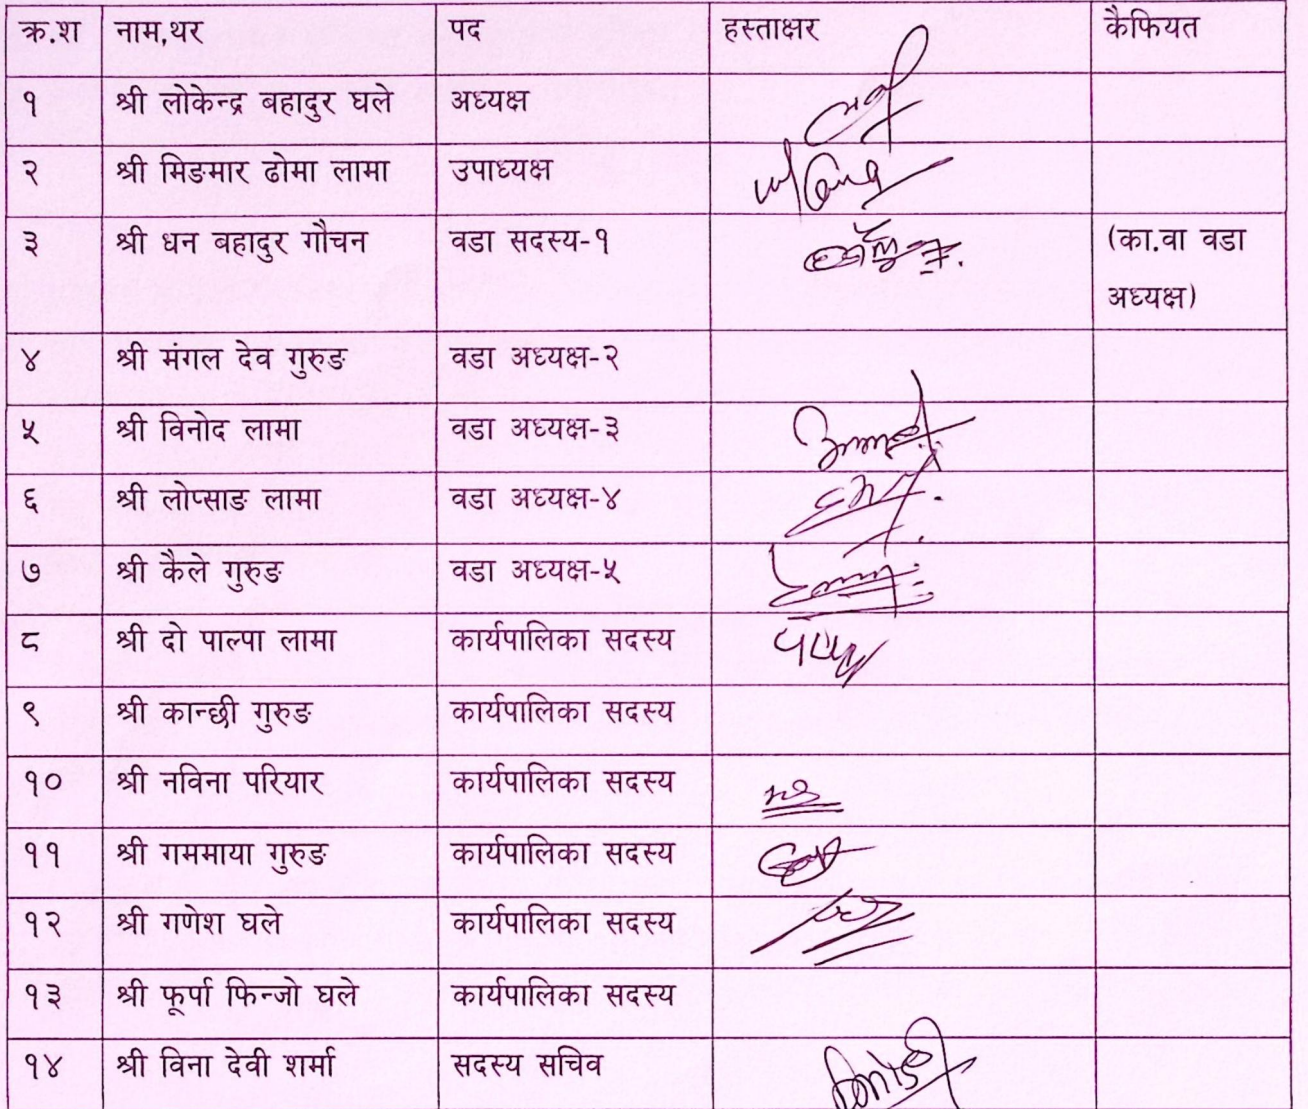 क्र.श नाम,थर पद हस्ताक्षर कैफियत
१ श्री लोकेन्द्र बहादुर घले अध्यक्ष
२ श्री मिङमार ढोमा लामा उपाध्यक्ष
३ श्री धन बहादुर गौचन वडा सदस्य-१ (का.वा वडा
अध्यक्ष)
४ श्री मंगल देव गुरुङ वडा अध्यक्ष-२
५ श्री विनोद लामा वडा अध्यक्ष-३
६ श्री लोप्साङ लामा वडा अध्यक्ष-४
७ श्री कैले गुरुङ वडा अध्यक्ष-५
८ श्री दो पाल्पा लामा कार्यपालिका सदस्य
९ श्री कान्छी गुरुङ कार्यपालिका सदस्य
१० श्री नविना परियार कार्यपालिका सदस्य
११ श्री गममाया गुरुङ कार्यपालिका सदस्य
१२ श्री गणेश घले कार्यपालिका सदस्य
१३ श्री फूर्पा फिन्जो घले कार्यपालिका सदस्य
१४ श्री विना देवी शर्मा सदस्य सचिव